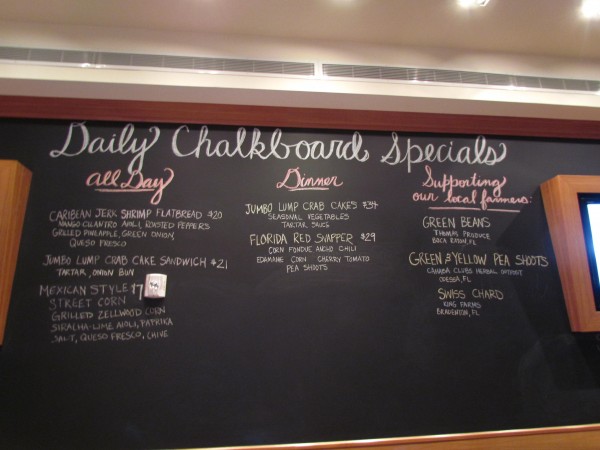 Daily Chalkboard Specials
all Day
CARIBEAN JERK SHRIMP FLATBREAD $20
MANGO CILANTRO AIOLI, ROASTED PEPPERS
GRILLED PINEAPPLE, GREEN ONION,
QUESO FRESCO
JUMBO LUMP CRAB CAKE SANDWICH $21
TARTAR, ONION BUN
MEXICAN STYLE $7
STREET CORN
GRILLED ZELLWOOD CORN
SIRACHA-LIME AIOLI, PAPRIKA
SALT, QUESO FRESCO, CHIVE
Dinner
JUMBO LUMP CRAB CAKES $34
SEASONAL VEGETABLES
TARTAR SAUCE
FLORIDA RED SNAPPER $29
CORN FONDUE ANCHO CHILI
EDAMAME CORN CHERRY TOMATO
PEA SHOOTS
Supporting
our local farmers:
GREEN BEANS
THOMAS PRODUCE
BOCA RATON, FL
GREEN & YELLOW PEA SHOOTS
CLUBS HERBAL
ODESSA, FL
SWISS CHARD
KING FARMS
BRADENTON, FL